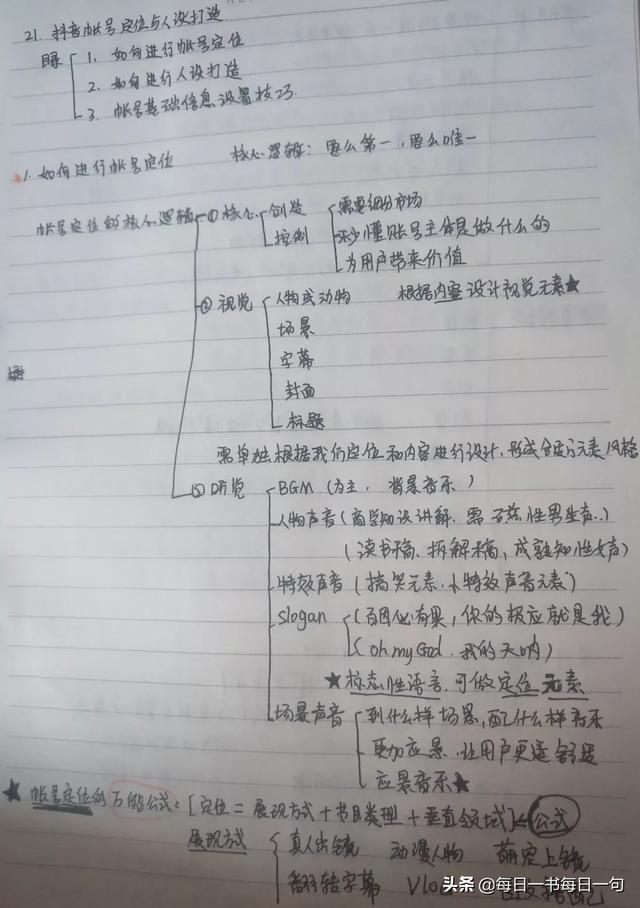 21. 抖音帐号定位与人设打造
目录 1. 如何进行帐号定位
2. 如何进行人设打造
3. 帐号基础信息设置技巧
1. 如何进行帐号定位 核心逻辑: 要么第一,要么唯一
帐号定位的核心逻辑 ① 核心 创造 需要细分市场
控制 秒懂账号主体是做什么的
为用户带来价值
② 视觉 人物或动物 根据内容设计视觉元素★
场景
字幕
封面
标题
需单独根据我们定位和内容进行设计,形成元素风格
③ 听觉 BGM (为主, 背景音乐)
人物声音(商学知识讲解.需 磁性男生声.)
(读书稿、拆解稿,成熟知性女声)
特效声音(搞笑元素.特效声音元素)
slogan (百因必有果,你的报应就是我)
(oh my God.我的天呐)
★标志性语言.可做定位元素
场景声音 到什么样场景,配什么样音乐
更加应景.让用户更适舒适
应景音乐★
★ 帐号定位的万能公式:[定位=展现方式+节目类型+垂直领域] 公式
展现方式 真人出镜 动漫人物 萌宠上镜
翻转字幕 Vlog
头条 @每日一书每日一句